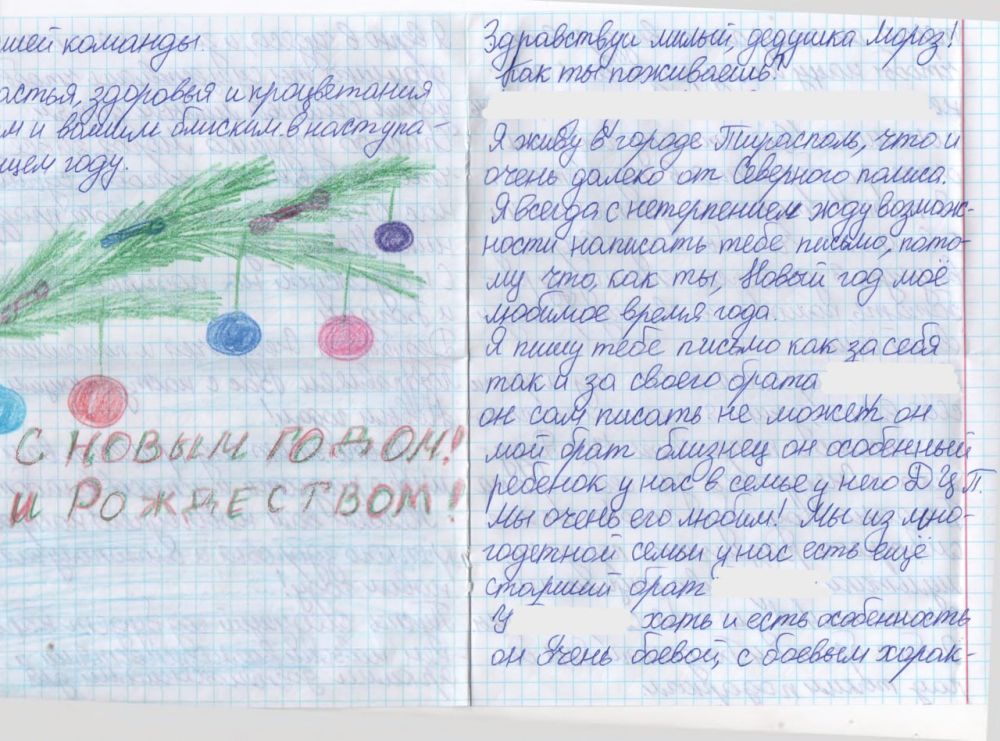 шей команды.
астья, здоровья и процветания
м и вашим блиским в наступа-
щем году.
С НОВЫМ ГОДОМ!
И РОЖДЕСТВОМ!
Здравствуй милый, дедушка Мороз!
Как ты поживаешь?
Я живу в городе Тирасполь, что и
очень далеко от Северного полиса.
Я всегда с нетерпением жду возмож-
ности написать тебе письмо, пото-
му что, как ты, Новый год моё
любимое время года.
Я пишу тебе письмо как за себя
так и за своего брата
он сам писать не может он
мой брат близнец он особенный
ребенок у нас в семье у него ДЦП.
Мы очень его любим! Мы из мно-
годетной семьи у нас есть ещё
старший брат
У хоть и есть особенность
он очень боевой, с боевым харак-